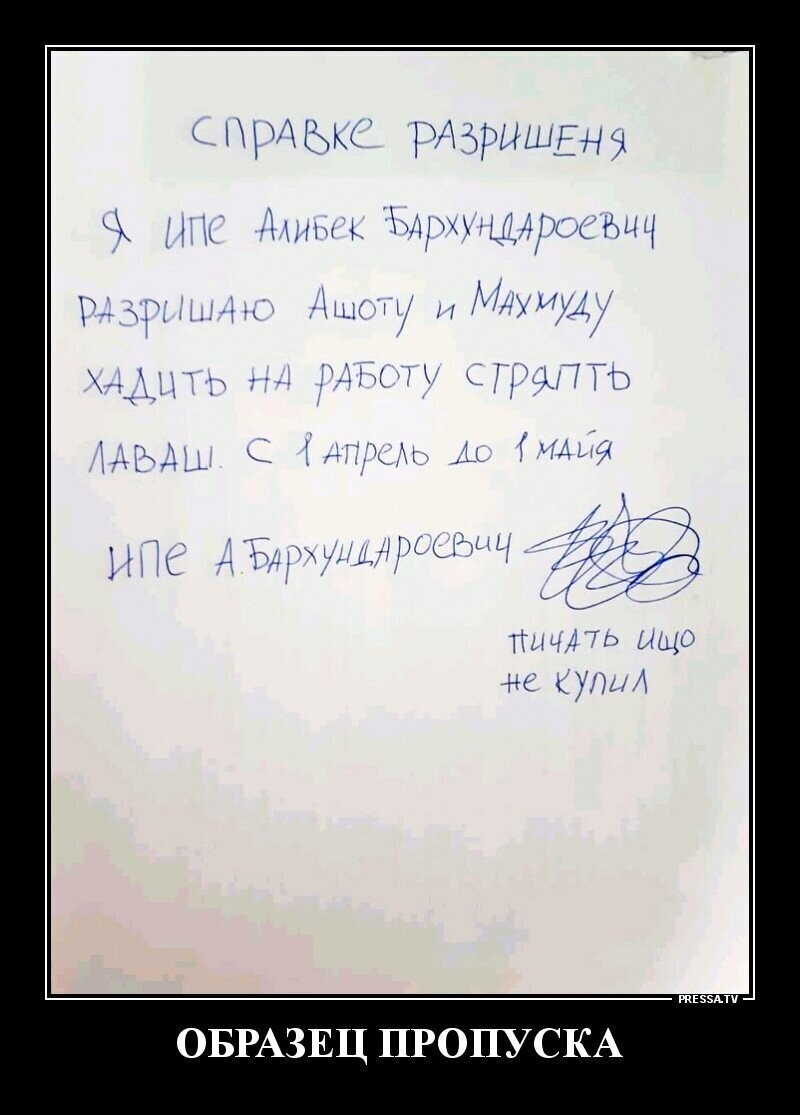 СПРАВКЕ РАЗРИШЕНЯ
Я ИПЕ АЛИБЕК БАРХУНДАРОЕВИЧ
РАЗРИШАЮ АШОТУ И МАХМУДУ
ХАДИТЬ НА РАБОТУ СТРЯПТЬ
ЛАВАШ. С 1 АПРЕЛЬ ДО 1 МАЙЯ
ИПЕ А.БАРХУНДАРОЕВИЧ
ПИЧАТЬ ИЩО
НЕ КУПИЛ
PRESSA.TV
ОБРАЗЕЦ ПРОПУСКА